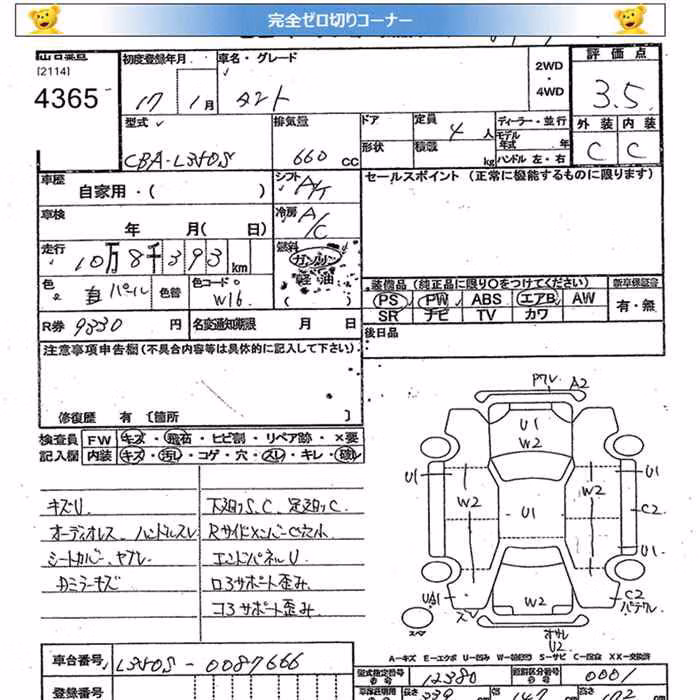 完全ゼロ切りコーナー
[2114]
4365
初度登録年月 車名・グレード
17 1月 タント
2WD
・
4WD
評価点
3.5
外装 内装
C C
型式 排気量 ドア 定員 4人 ディーラー・並行
モデル年式 年
CBA-L350S 660cc 形状 積載 kg ハンドル 左・右
車歴 シフト A/T セールスポイント (正常に機能するものに限ります)
自家用・( )
車検 冷房 A/C
年 月( 日)
走行 燃料
10万8千393km ガソリン
軽油
( )
色 白パール 色替 色コード W16
装備品 (純正品に限り○をつけてください) 新車保証書
PS PW ABS エアB AW 有・無
SR ナビ TV カワ
R券 9330円 名変通知期限 月 日 後日品
注意事項申告欄(不具合内容等は具体的に記入して下さい。)
修復歴 有 〔箇所 〕
検査員 FW キズ・飛石・ヒビ割・リペア跡・×要
記入欄 内装 キズ・汚れ・コゲ・穴・スレ・キレ・破れ
キズU 下廻りS、C、足廻りC
オーディオレス ハンドルスレ RサイドメンバーC穴小
シートカバー、ヤブレ エンドパネルU
ロ3サポート歪み
コ3サポート歪み
A2
U1
W2
U1 U1
W2 W2
U1 C2
U1
W2 C2
U2
A-キズ E-エクボ U-凹み S-サビ C-腐食 XX-交換済
車台番号 L350S-0087666
型式指定番号 12380 類別区分番号 0001
登録番号